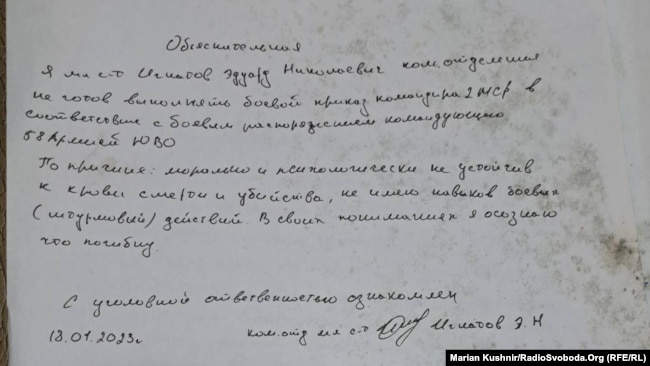 Объяснительная
Я мл с-т Игнатов Эдуард Николаевич ком. отделения
не готов выполнять боевой приказ командира 2 МСР в
соответствие с боевым распоряжением командующего
58 Армией ЮВО
По причине: морально и психологически не устойчив
к крови смерти и убийства, не имею навыков боевых
(штурмовых) действий. В своих пониманиях я осознаю
что погибну.
С уголовной ответственностью ознакомлен
18.01.2023г ком. отд мл с-т Игнатов Э. Н
Marian Kushnir/RadioSvoboda.Org (RFE/RL)